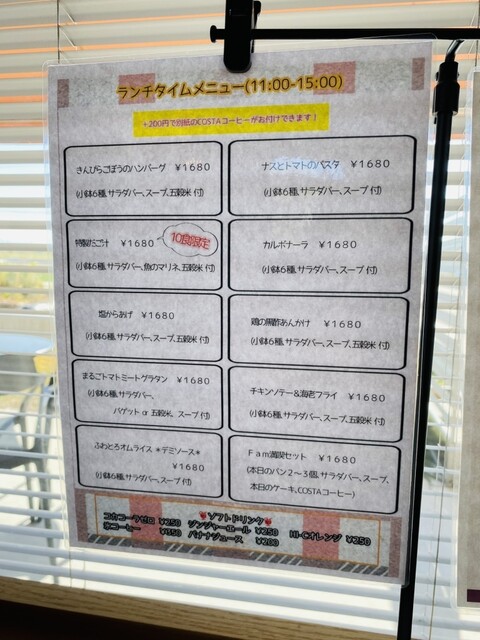 ランチタイムメニュー(11:00-15:00)
+200円で別紙のCOSTAコーヒーがお付けできます!
きんぴらごぼうのハンバーグ ¥1680
(小鉢6種、サラダバー、スープ、五穀米 付)
ナスとトマトのパスタ ¥1680
(小鉢6種、サラダバー、スープ 付)
だご汁 ¥1680
10食限定
(小鉢6種、サラダバー、魚のマリネ、五穀米 付)
カルボナーラ ¥1680
(小鉢6種、サラダバー、スープ 付)
塩からあげ ¥1680
(小鉢6種、サラダバー、スープ、五穀米 付)
鶏の黒酢あんかけ ¥1680
(小鉢6種、サラダバー、スープ、五穀米 付)
まるごトマトミートグラタン ¥1680
(小鉢6種、サラダバー、
バゲット or 五穀米、スープ 付)
チキンソテー&海老フライ ¥1680
(小鉢6種、サラダバー、スープ、五穀米 付)
ふわとろオムライス *デミソース*
¥1680
(小鉢6種、サラダバー、スープ 付)
Fam満喫セット ¥1680
(本日のパン2~3個、サラダバー、スープ、
本日のケーキ、COSTAコーヒー)
ソフトドリンク
コカコーラゼロ ¥250 ジンジャーエール ¥250 HI-Cオレンジ ¥250
コーヒー バナナジュース ¥200